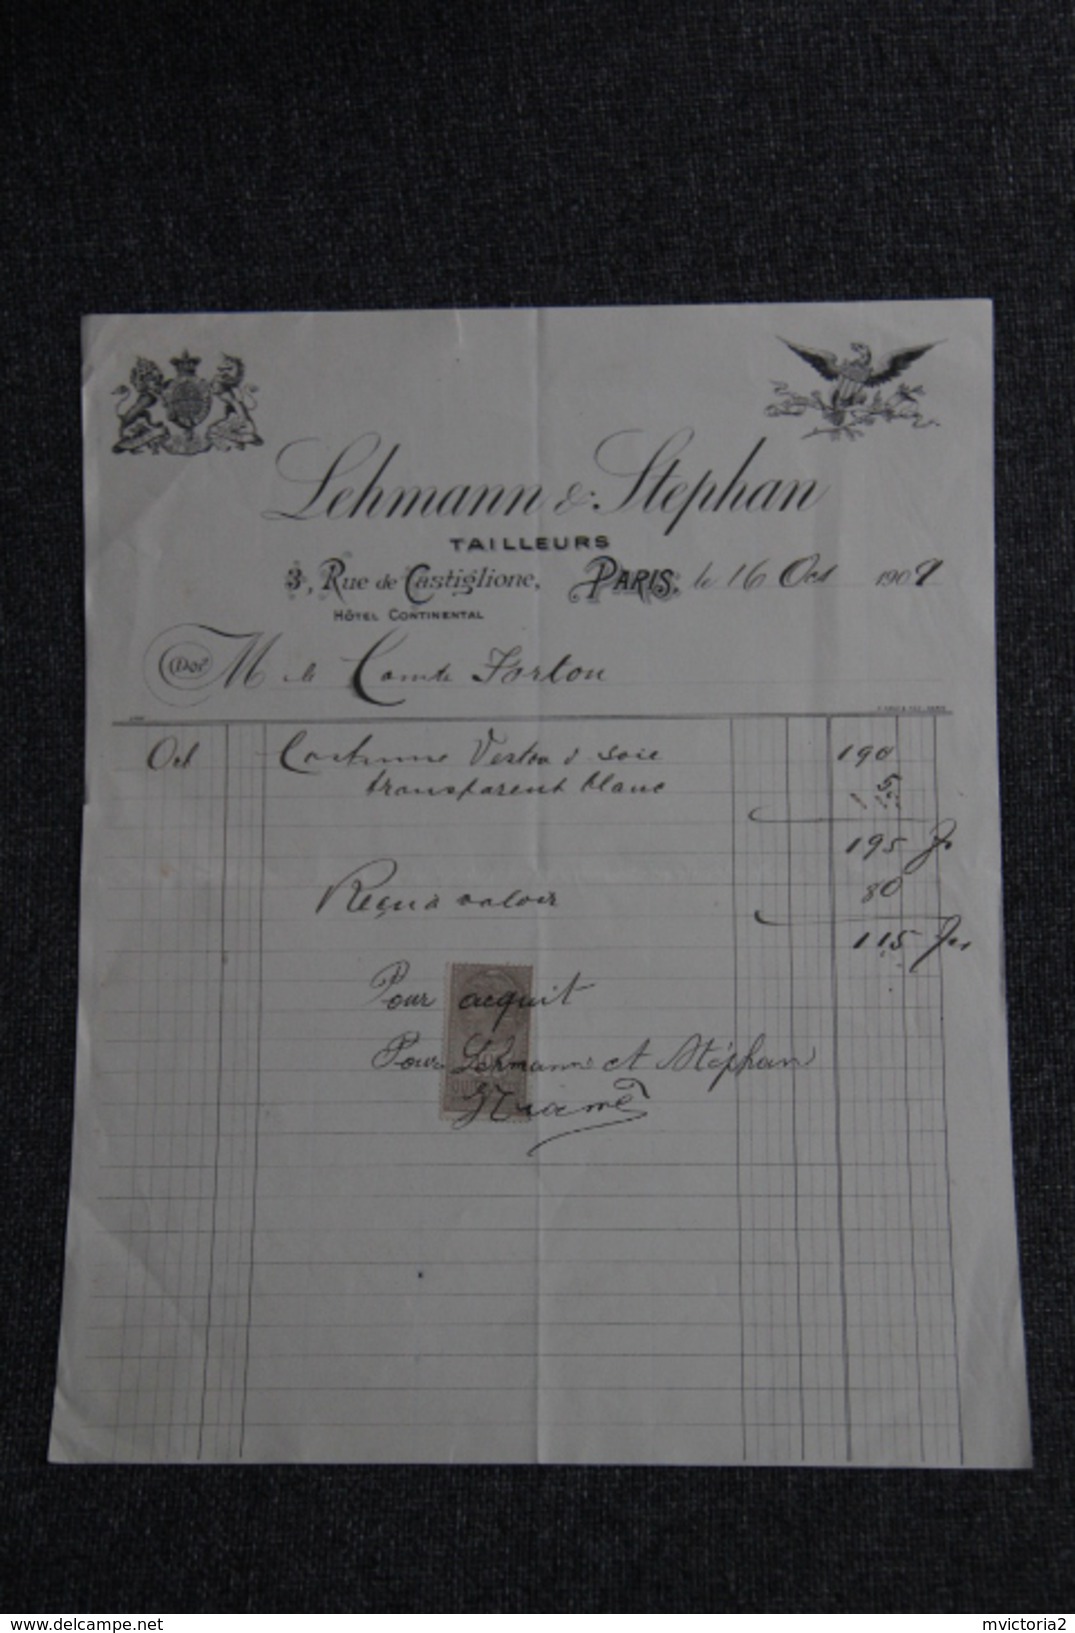 Lehmann & Stephan
TAILLEURS
3, Rue de Castiglione, PARIS, le 16 Oct 1909
HÔTEL CONTINENTAL
Doit M le Comte Forton
Oct Costume Veston d soie 190
transparent blanc 5
195 Fs
Reçu à valoir 80
115 Frs
Pour acquit
Pour Lehmann et Stéphan
delcampe.net
mvictoria2